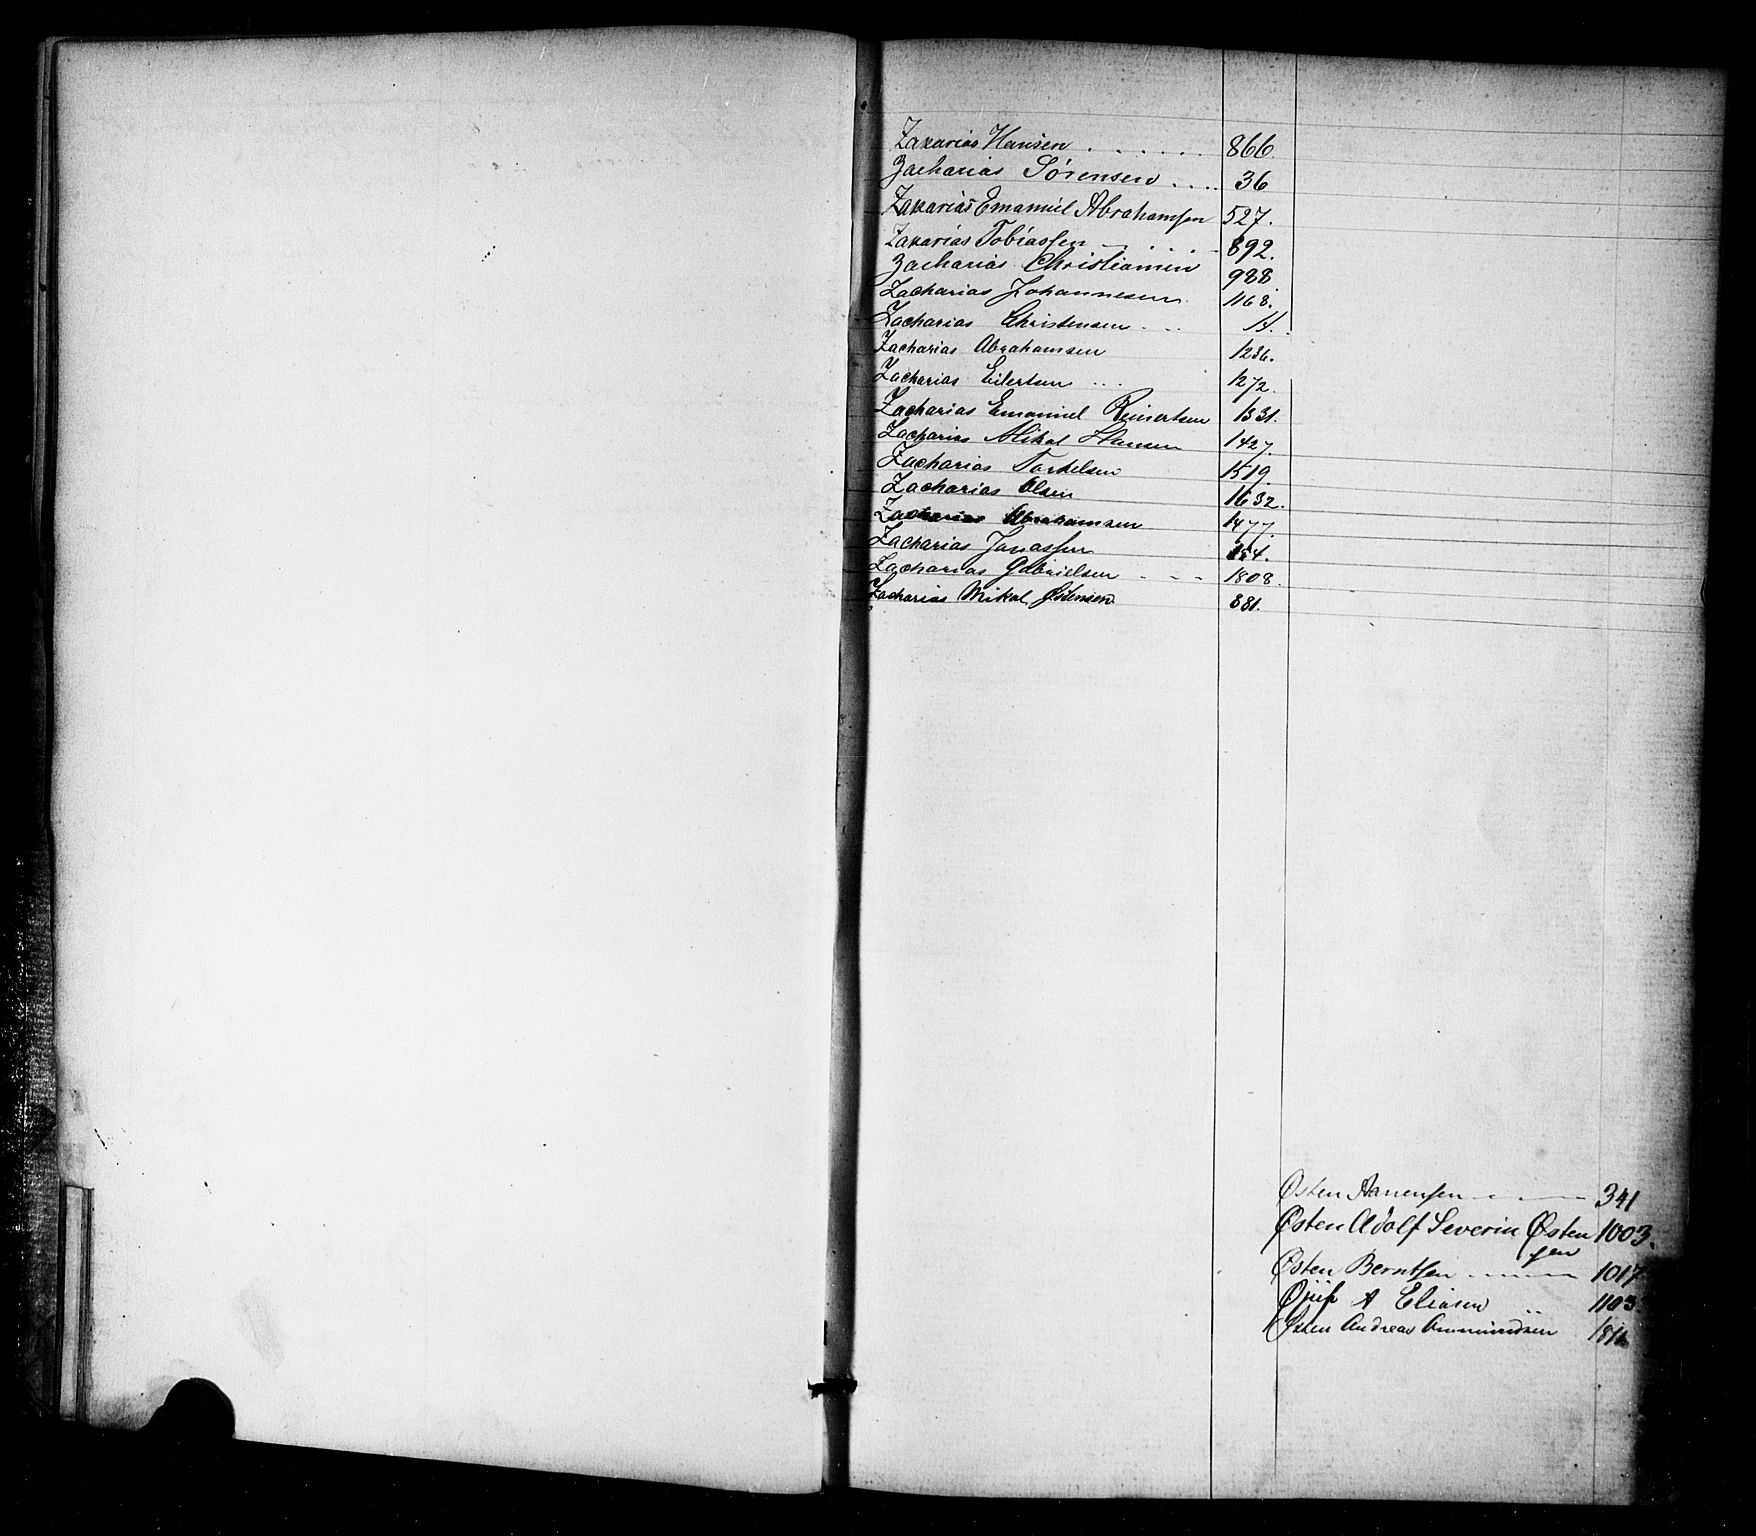 Zakarias Hansen . . . . . . . 866.
Zacharias Sørensen . . . . 36
Zakarias Emanuel Abrahamsen 527.
Zakarias Tobiassen . . . . . 892.
Zacharias Christiansen 988
Zacharias Johannesen 1168.
Zacharias Christensen . . .
Zacharias Abrahamsen 1236.
Zacharias Eilertsen . . . 1272.
Zacharias Emanuel Reinertsen 1331.
Zacharias Mikal Hansen 1427.
Zacharias Torkelsen 1519.
Zacharias Olsen 1632.
Zacharias Abrahamsen 1477.
Zacharias Jonassen 154.
Zacharias Gabrielsen - - - 1808.
Zacharias Mikal Østensen 881.
Østen Aanensen - - - - 341
Østen Adolf Severin Østen 1003.
sen
Østen Berntsen - - - - - 1017
A Eliasen 1103.
Østen Andreas Ommundsen